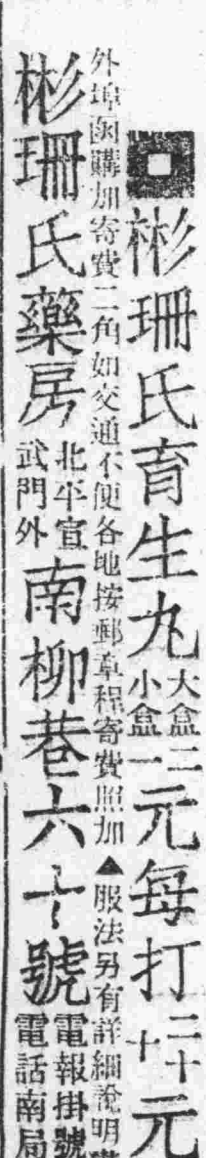 彬珊氏育生丸大盒二小盒一元每打二十十元
外埠函購加寄費二角如交通不便各地按郵章程寄費照加▲服法另有詳細說明
彬珊氏藥房北平宣武門外南柳巷六十號電報掛號電話南局